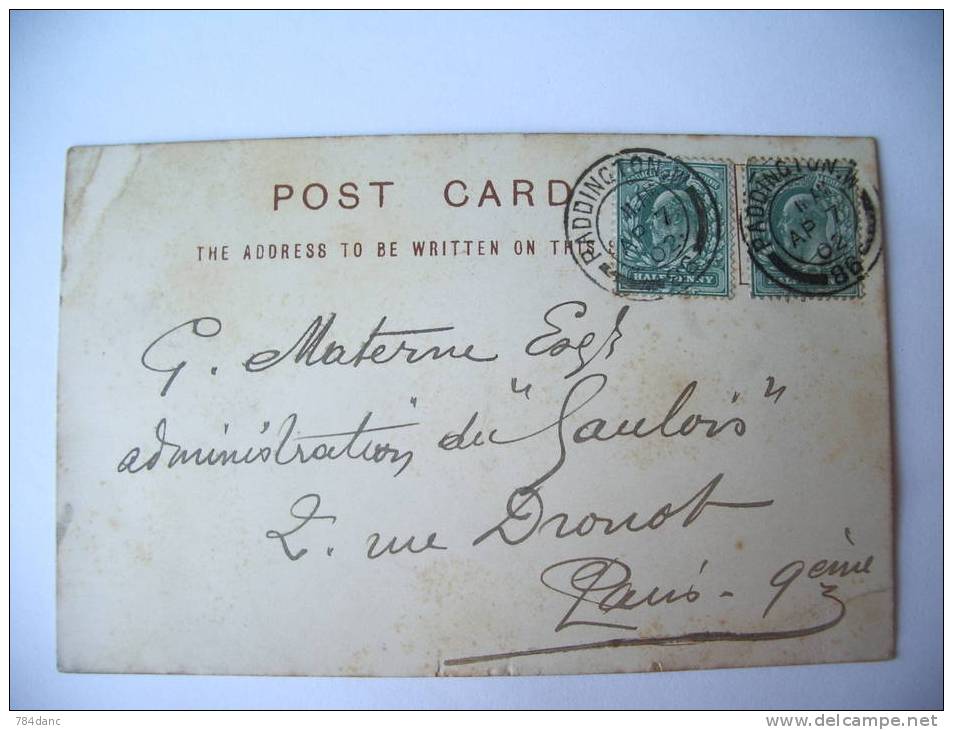 POST CARD
THE ADDRESS TO BE WRITTEN ON THIS
PADDINGTON.W
AP 7
02
HALFPENNY
PADDINGTON.W
AP 7
02
98
G. Materne Esqr
administration du "Gaulois"
2. rue Drouot
Paris - 9ème
784danc
www.delcampe.net